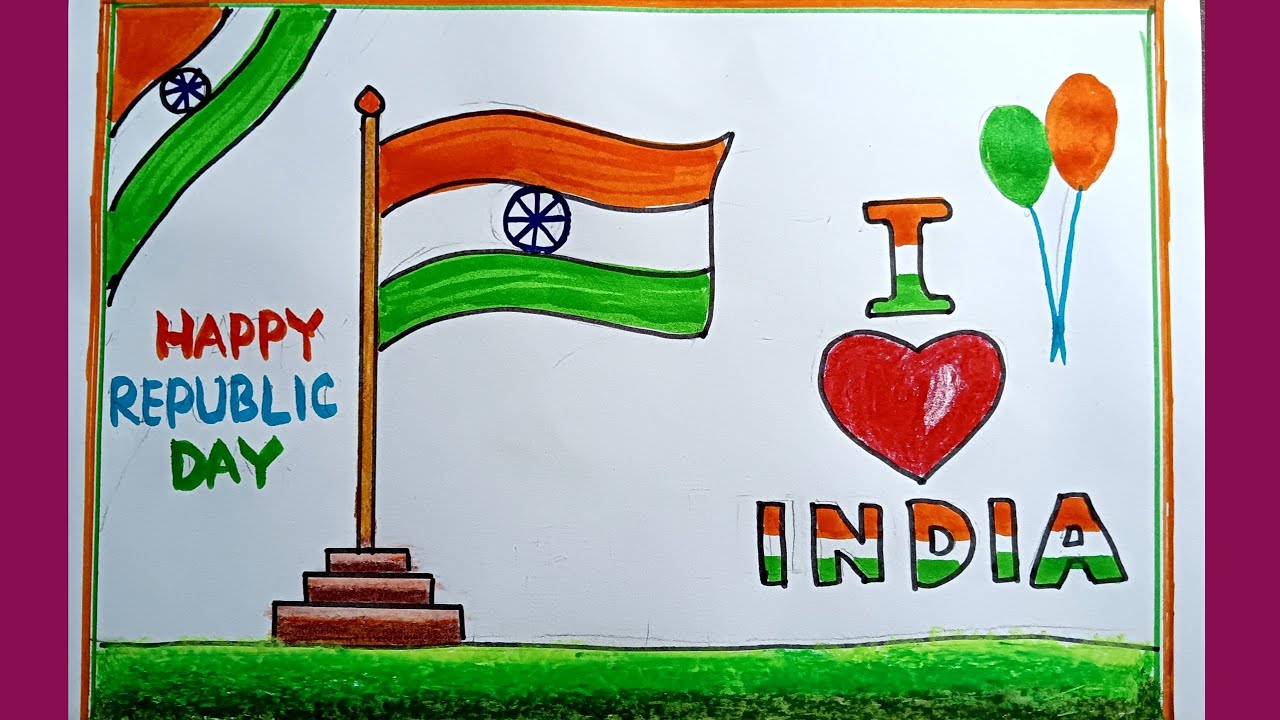 HAPPY
REPUBLIC
DAY
I
INDIA